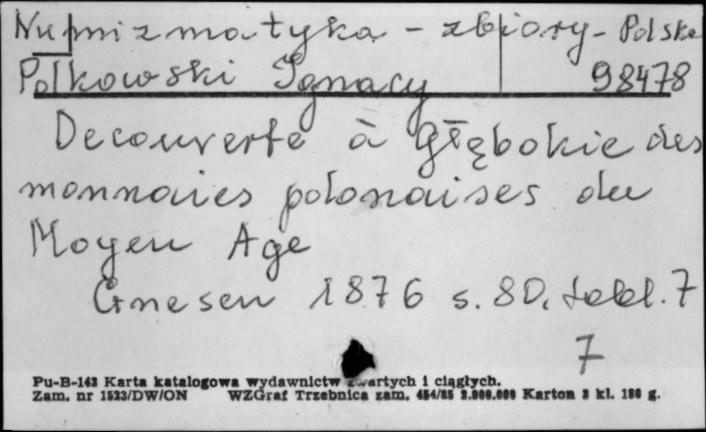 Numizmatyka - zbiory - Polska
Polkowski Ignacy 98478
Decouverte à Głębokie des
monnaies polonaises du
Moyen Age
Gnesen 1876 s. 80, tabl. 7
7
Pu-B-143 Karta katalogowa wydawnictw zwartych i ciągłych.
Zam. nr 1523/DW/ON WZGraf Trzebnica zam. 454/85 3.000.000 Karton 3 kl. 180 g.